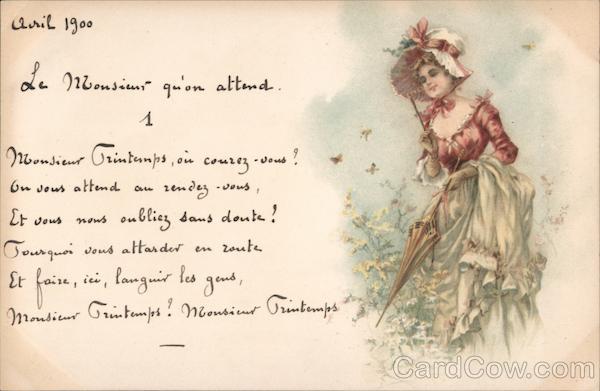 Avril 1900
Le Monsieur qu'on attend.
1
Monsieur Printemps, où courez-vous?
On vous attend au rendez-vous,
Et vous nous oubliez sans doute?
Pourquoi vous attarder en route
Et faire, ici, languir les gens,
Monsieur Printemps? Monsieur Printemps
CardCow.com